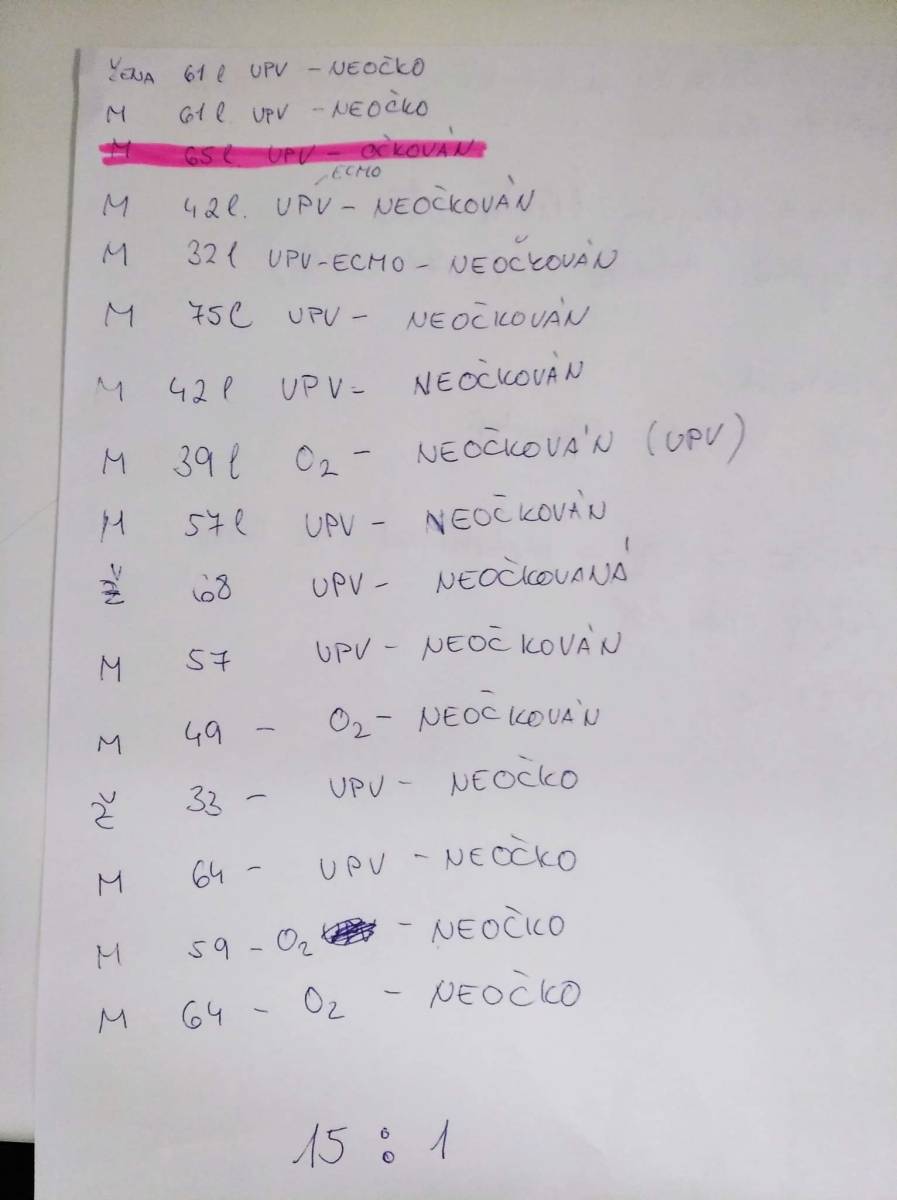 ŽENA 61 l UPV - NEOČKO
M 61 l. UPV - NEOČKO
M 65 l. UPV - OČKOVÁN
ECMO
M 42 l. UPV - NEOČKOVÁN
M 32 l UPV-ECMO - NEOČKOVÁN
M 75 l UPV - NEOČKOVÁN
M 42 l UPV - NEOČKOVÁN
M 39 l O2 - NEOČKOVÁN (UPV)
M 57 l UPV - NEOČKOVÁN
Ž 68 UPV - NEOČKOVANÁ
M 57 UPV - NEOČKOVÁN
M 49 - O2 - NEOČKOVÁN
Ž 33 - UPV - NEOČKO
M 64 - UPV - NEOČKO
M 59 - O2 - NEOČKO
M 64 - O2 - NEOČKO
15 : 1